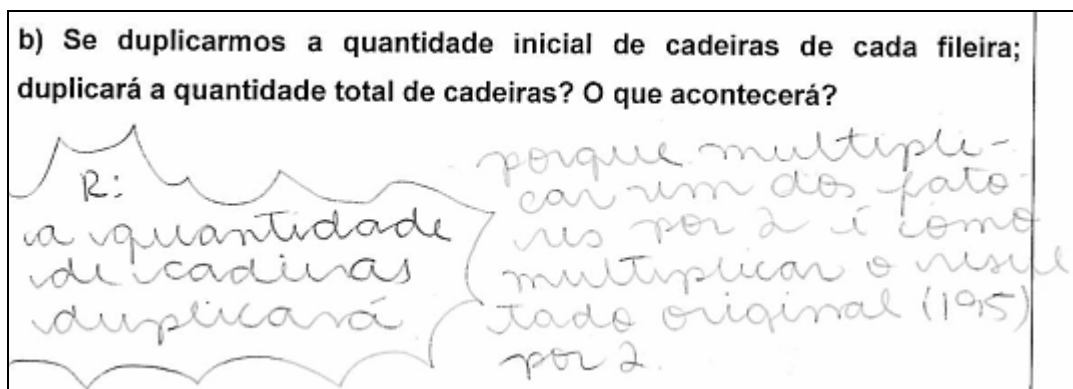 b) Se duplicarmos a quantidade inicial de cadeiras de cada fileira;
duplicará a quantidade total de cadeiras? O que acontecerá?
R:
a quantidade
de cadeiras
duplicará
porque multipli-
car um dos fato-
res por 2 é como
multiplicar o resul
tado original (195)
por 2.